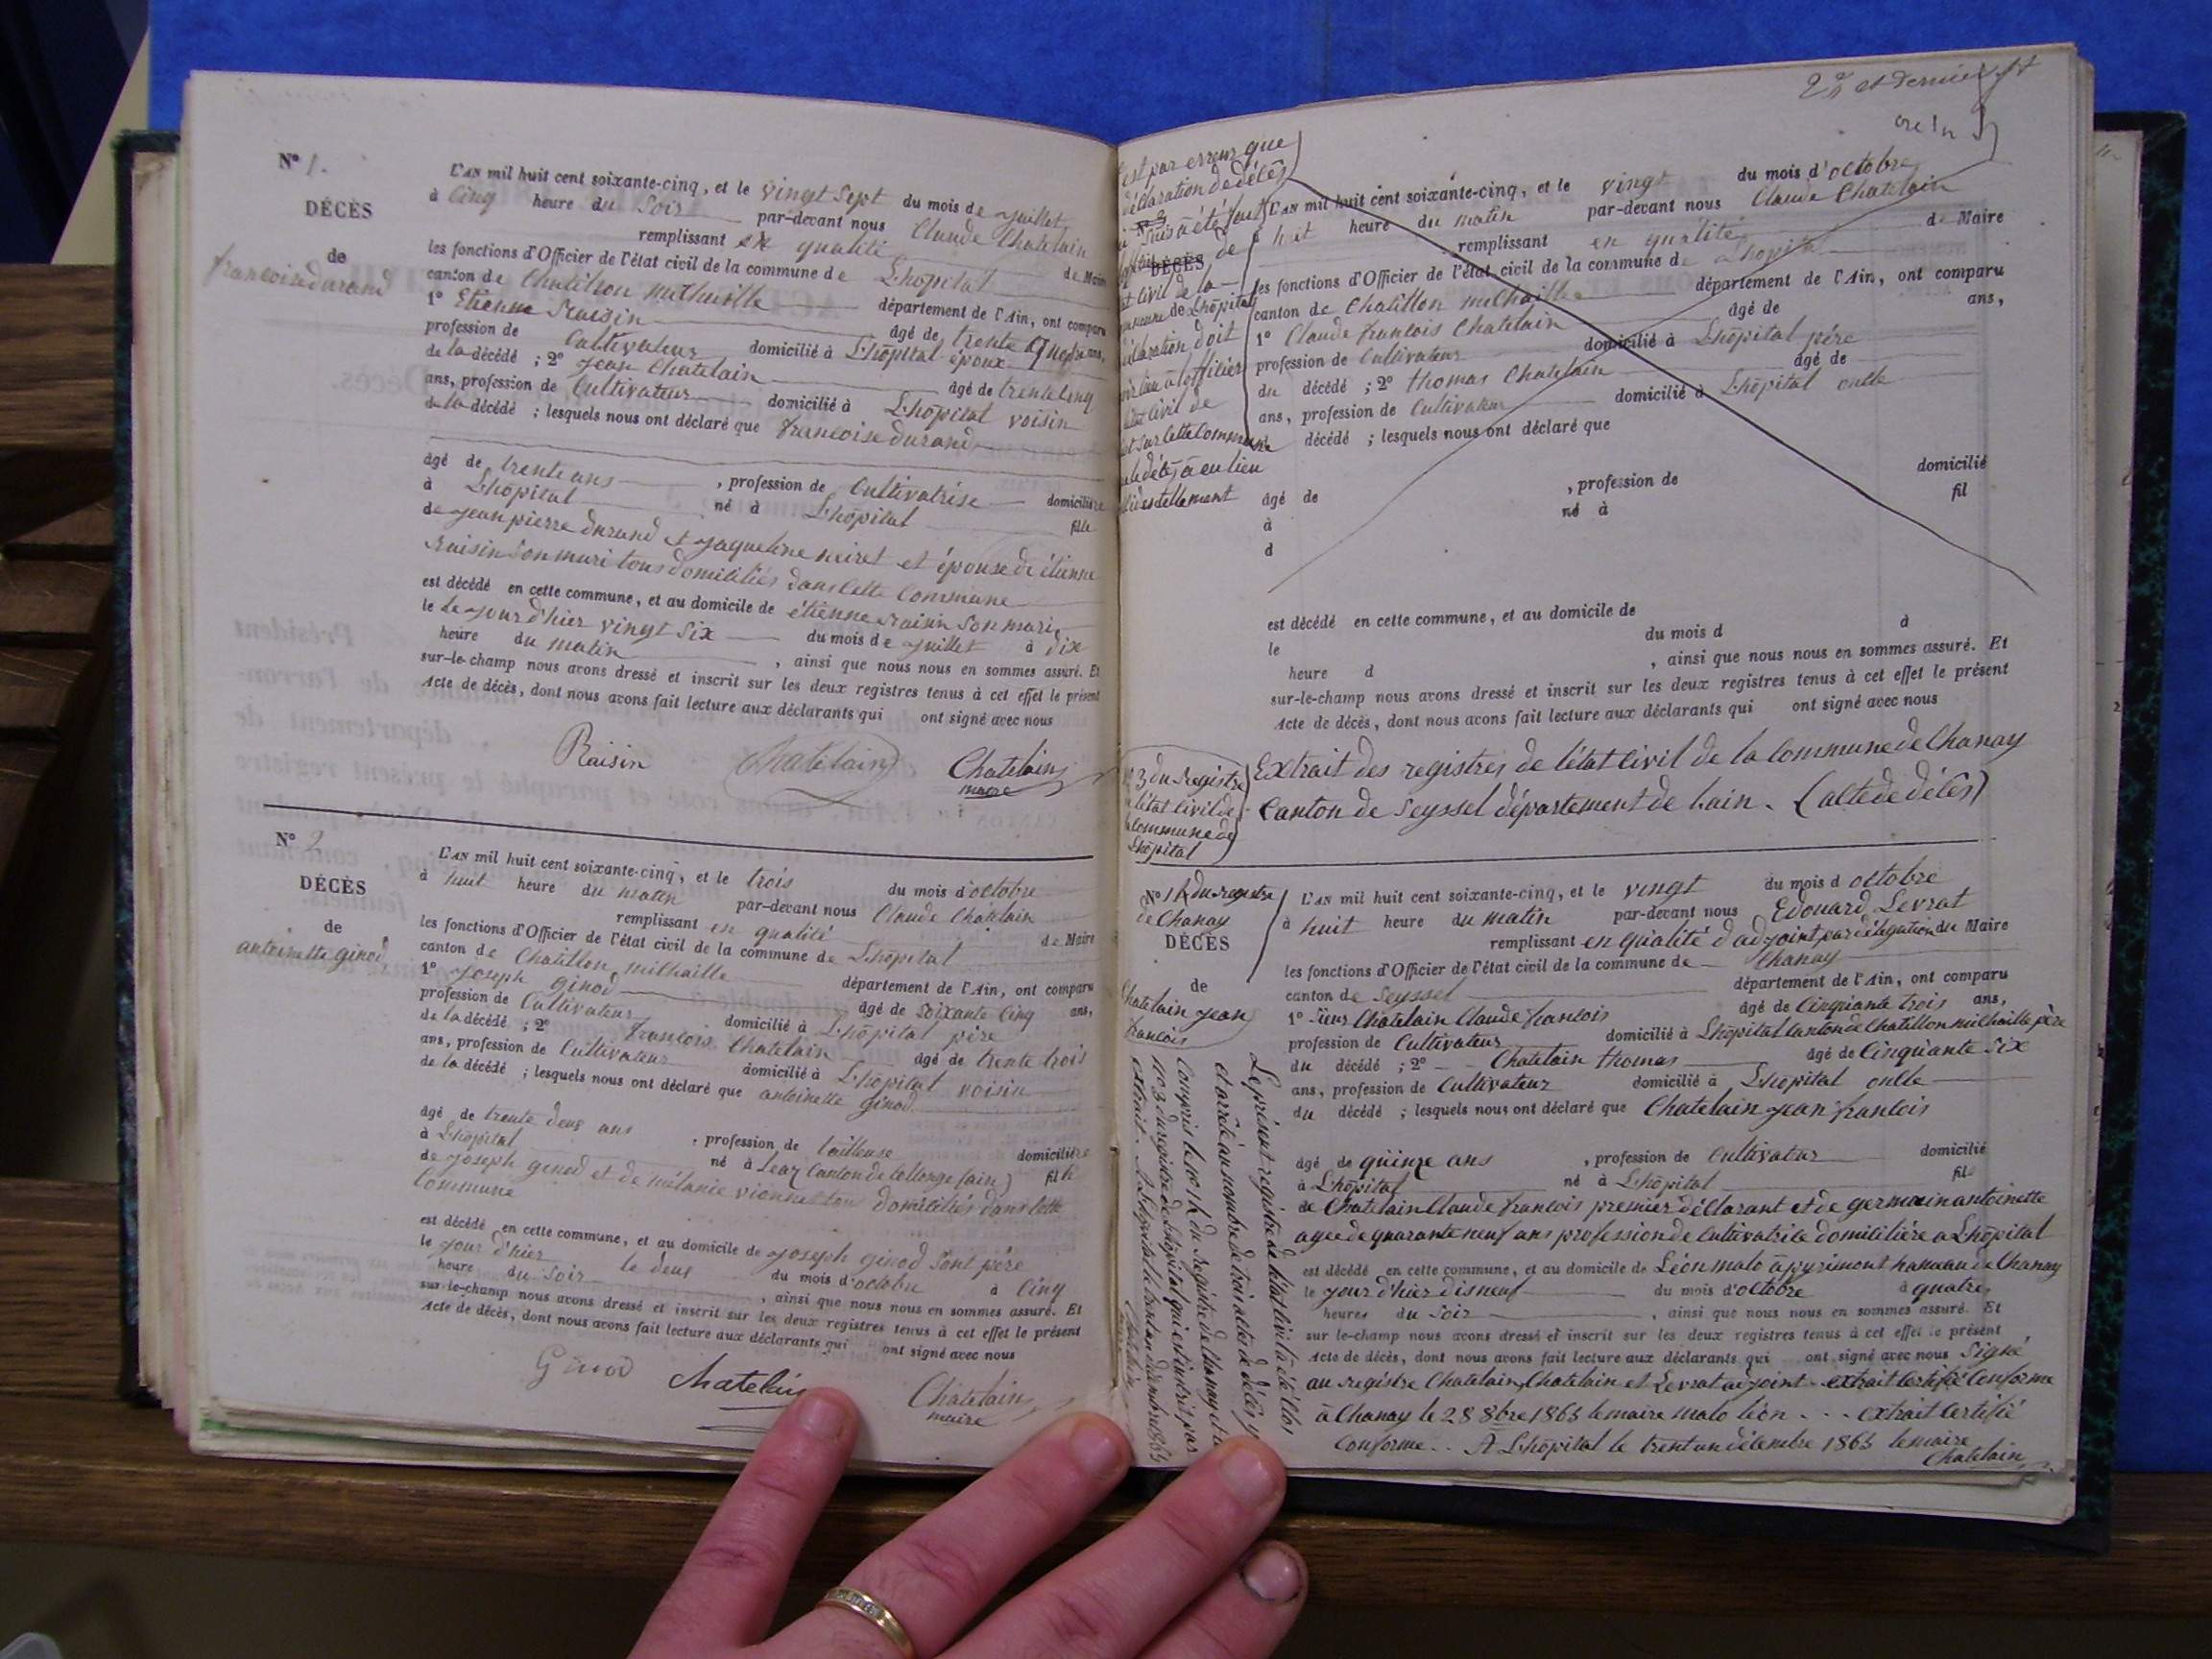 N° 1.
DÉCÈS
de
francoise durand
L'AN mil huit cent soixante-cinq, et le vingt sept du mois de juillet
à cinq heure du soir par-devant nous Claude Chatelain
remplissant en qualité de Maire
les fonctions d'Officier de l'état civil de la commune de L'hôpital
canton de Chatillon michaille département de l'Ain, ont comparu
1° Etienne Raisin âgé de trente ans,
profession de Cultivateur domicilié à L'hôpital époux
de la décédé ; 2° Jean Chatelain âgé de trente cinq
ans, profession de Cultivateur domicilié à L'hôpital voisin
de la décédé ; lesquels nous ont déclaré que francoise durand
âgé de trente ans , profession de Cultivatrise domicilière
à L'hôpital né à L'hôpital fille
de jean pierre durand et jaqueline neiret et épouse de étienne
raisin son mari tous domiciliés dans cette Commune
est décédé en cette commune, et au domicile de étienne raisin son mari
le le jour d'hier vingt six du mois de juillet à dix
heure du matin , ainsi que nous nous en sommes assuré. Et
sur-le-champ nous avons dressé et inscrit sur les deux registres tenus à cet effet le présent
Acte de décès, dont nous avons fait lecture aux déclarants qui ont signé avec nous
Raisin Chatelain Chatelain
maire
N° 2
DÉCÈS
de
antoinette ginod
L'AN mil huit cent soixante-cinq, et le trois du mois d'octobre
à huit heure du matin par-devant nous Claude Chatelain
remplissant en qualité de Maire
les fonctions d'Officier de l'état civil de la commune de L'hôpital
canton de Chatillon milhaille département de l'Ain, ont comparu
1° Joseph ginod âgé de soixante cinq ans,
profession de Cultivateur domicilié à L'hôpital père
de la décédé ; 2° francois Chatelain âgé de trente trois
ans, profession de Cultivateur domicilié à L'hôpital voisin
de la décédé ; lesquels nous ont déclaré que antoinette ginod
âgé de trente deus ans , profession de tailleuse domicilière
à L'hôpital né à Leaz Canton de Collonge (ain) fille
de joseph ginod et de mélanie vionnet tous domiciliés dans cette
Commune
est décédé en cette commune, et au domicile de joseph ginod sont père
le jour d'hier le deus du mois d'octobre à cinq
heure du soir , ainsi que nous nous en sommes assuré. Et
sur-le-champ nous avons dressé et inscrit sur les deux registres tenus à cet effet le présent
Acte de décès, dont nous avons fait lecture aux déclarants qui ont signé avec nous
Ginod Chatelain Chatelain
maire
2e et dernier
est par erreur que
déclaration de décès
DÉCÈS
état civil de la
commune de L'hôpital
déclaration doit
l'état civil de
L'AN mil huit cent soixante-cinq, et le vingt du mois d'octobre
à huit heure du matin par-devant nous Claude Chatelain
remplissant en qualité de Maire
les fonctions d'Officier de l'état civil de la commune de L'hôpital
canton de Chatillon milhaille département de l'Ain, ont comparu
1° Claude francois Chatelain âgé de ans,
profession de Cultivateur domicilié à L'hôpital père
du décédé ; 2° thomas Chatelain âgé de
ans, profession de Cultivateur domicilié à L'hôpital oncle
décédé ; lesquels nous ont déclaré que
âgé de , profession de domicilié
à né à fil
d
est décédé en cette commune, et au domicile de
le du mois d à
heure d , ainsi que nous nous en sommes assuré. Et
sur-le-champ nous avons dressé et inscrit sur les deux registres tenus à cet effet le présent
Acte de décès, dont nous avons fait lecture aux déclarants qui ont signé avec nous
3 du registre
l'état civil de
la commune de
L'hôpital
Extrait des registres de l'état civil de la Commune de Chanay
Canton de Seyssel département de L'ain. (acte de décès)
N° 14 du registre
de Chanay
DÉCÈS
de
Chatelain jean
francois
L'AN mil huit cent soixante-cinq, et le vingt du mois d octobre
à huit heure du matin par-devant nous Edouard Levrat
remplissant en qualité d adjoint par délégation du Maire
les fonctions d'Officier de l'état civil de la commune de Chanay
canton de Seyssel département de l'Ain, ont comparu
1° Sieur Chatelain Claude francois âgé de Cinquante trois ans,
profession de Cultivateur domicilié à L'hôpital Canton de Chatillon milhaille père
du décédé ; 2° Chatelain thomas âgé de Cinquante six
ans, profession de Cultivateur domicilié à L'hôpital oncle
du décédé ; lesquels nous ont déclaré que Chatelain jean francois
âgé de quinze ans , profession de Cultivateur domicilié
à L'hôpital né à L'hôpital fils
de Chatelain Claude francois premier déclarant et de germain antoinette
agee de quarante neuf ans profession de Cultivatrice domicilière a L'hôpital
est décédé en cette commune, et au domicile de Léon malo à pyrimont hameau de Chanay
le jour d'hier disneuf du mois d'octobre à quatre
heures du soir , ainsi que nous nous en sommes assuré. Et
sur le-champ nous avons dressé et inscrit sur les deux registres tenus à cet effet le présent
Acte de décès, dont nous avons fait lecture aux déclarants qui ont signé avec nous Signé
au registre Chatelain, Chatelain et Levrat adjoint - extrait Certifié Conforme
à Chanay le 28 8bre 1865 le maire malo léon . . . extrait Certifié
Conforme . . A L'hôpital le trent un décembre 1865 le maire
Chatelain
Le présent registre de l'état civil à été clos
et arrêté au nombre de trois actes de décès y
Compris le n° 14 du registre de Chanay et le
n° 3 du registre de L'hôpital qui est inscrit par
extrait